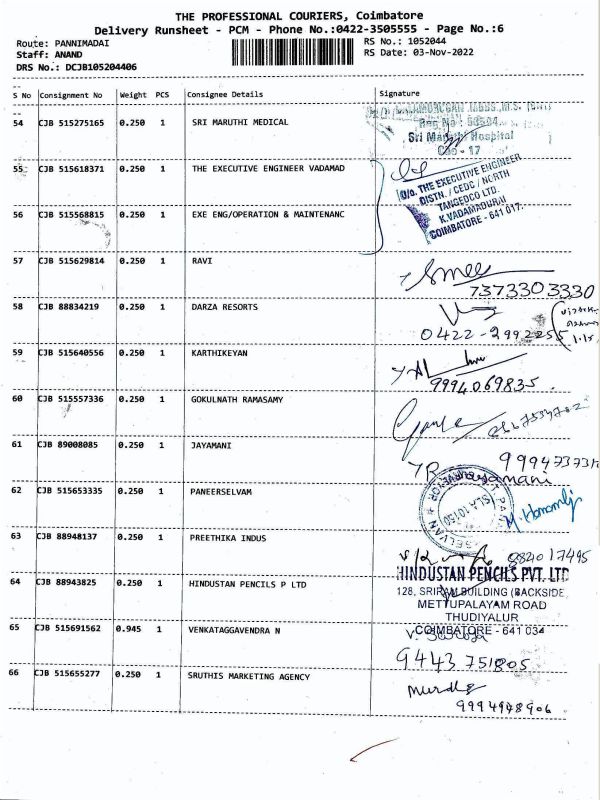 THE PROFESSIONAL COURIERS, Coimbatore
Delivery Runsheet - PCM - Phone No.:0422-3505555 - Page No.:6
Route: PANNIMADAI RS No.: 1052044
Staff: ANAND RS Date: 03-Nov-2022
DRS No.: DCJB105204406
S No Consignment No Weight PCS Consignee Details Signature
54 CJB 515275165 0.250 1 SRI MARUTHI MEDICAL
Reg No : 50504
Sri Maruthi Hospital
Cbe - 17
55 CJB 515618371 0.250 1 THE EXECUTIVE ENGINEER VADAMAD
O/o. THE EXECUTIVE ENGINEER
DISTN. / CEDC / NORTH
TANGEDCO LTD.
K.VADAMADURAI
COIMBATORE - 641 017.
56 CJB 515568815 0.250 1 EXE ENG/OPERATION & MAINTENANC
57 CJB 515629814 0.250 1 RAVI
7373303330
58 CJB 88834219 0.250 1 DARZA RESORTS
0422-2992255
59 CJB 515640556 0.250 1 KARTHIKEYAN
9994069835.
60 CJB 515557336 0.250 1 GOKULNATH RAMASAMY
61 CJB 89008085 0.250 1 JAYAMANI
62 CJB 515653335 0.250 1 PANEERSELVAM
63 CJB 88948137 0.250 1 PREETHIKA INDUS
9824017495
64 CJB 88943825 0.250 1 HINDUSTAN PENCILS P LTD
HINDUSTAN PENCILS PVT. LTD
128, SRIRAM BUILDING (BACKSIDE,
METTUPALAYAM ROAD
THUDIYALUR
COIMBATORE - 641 034
65 CJB 515691562 0.945 1 VENKATAGGAVENDRA N
9443 751805
66 CJB 515655277 0.250 1 SRUTHIS MARKETING AGENCY
9994948906